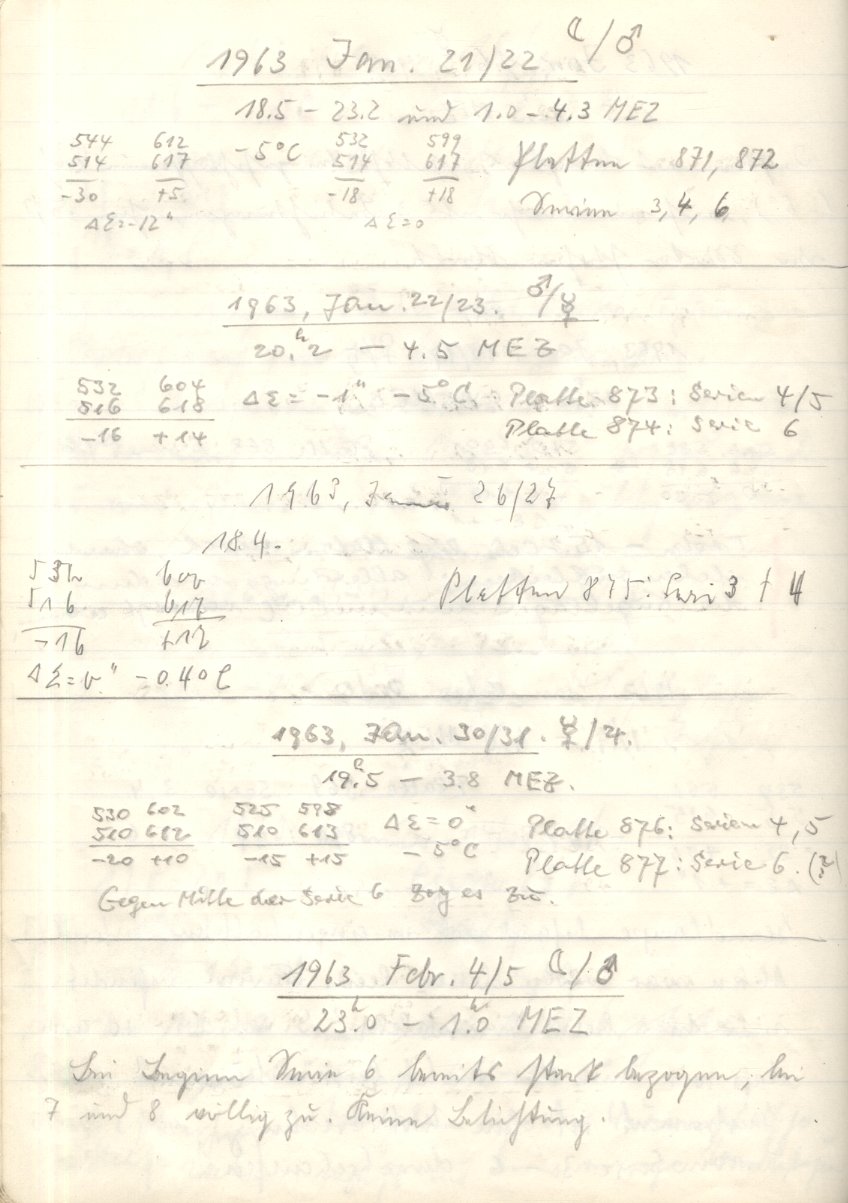 1963 Jan. 21/22 ☾/♂
18.5 – 23.2 und 1.0 – 4.3 MEZ
544 612 -5°C 532 599 Platten 871, 872
514 617 514 617
-30 +5 -18 +18 Serien 3, 4, 6
Δε=-12" Δε=0
1963, Jan. 22/23. ♂/☿
20.ʰ2 – 4.5 MEZ
532 604 Δε = -1" -5°C. Platte 873: Serien 4/5
516 618 Platte 874: Serie 6
-16 +14
1963, Januar 26/27
18.4-
532 600
516 617 Platten 875: Seri 3 + 4
-16 +17
Δε=0" -0.4°C
1963, Jan. 30/31. ☿/♃.
19.ʰ5 – 3.8 MEZ.
530 602 525 598 Δε=0" Platte 876: Serien 4, 5
510 612 510 613 -5°C
-20 +10 -15 +15 Platte 877: Serie 6. (?)
Gegen Mitte der Serie 6 zog es zu.
1963 Febr. 4/5 ☾/♂
23.ʰ0 – 1.ʰ0 MEZ
Bei Beginn Serie 6 bereits stark bezogen, bei
7 und 8 völlig zu. Keine Belichtung.